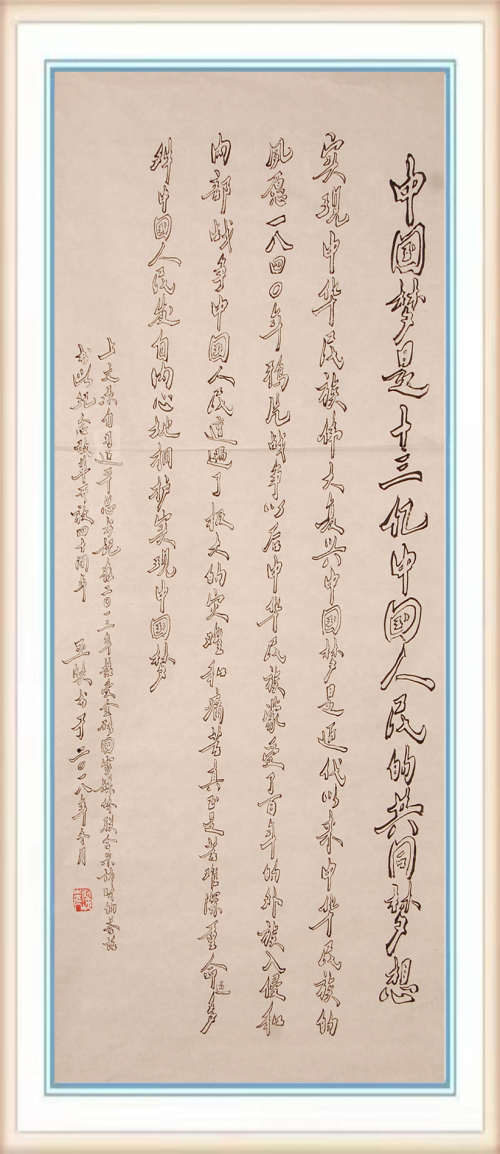 中国梦是十三亿中国人民的共同梦想
实现中华民族伟大复兴中国梦是近代以来中华民族的
夙愿一八四〇年鸦片战争以后中华民族蒙受了百年的外族入侵和
内部战争中国人民遭遇了极大的灾难和痛苦真正是苦难深重命运多
舛中国人民发自内心地拥护实现中国梦
上文录自习近平总书记在二〇一三年接受金砖国家媒体联合采访时的答话
书此纪念改革开放四十周年
书于二〇一八年 月